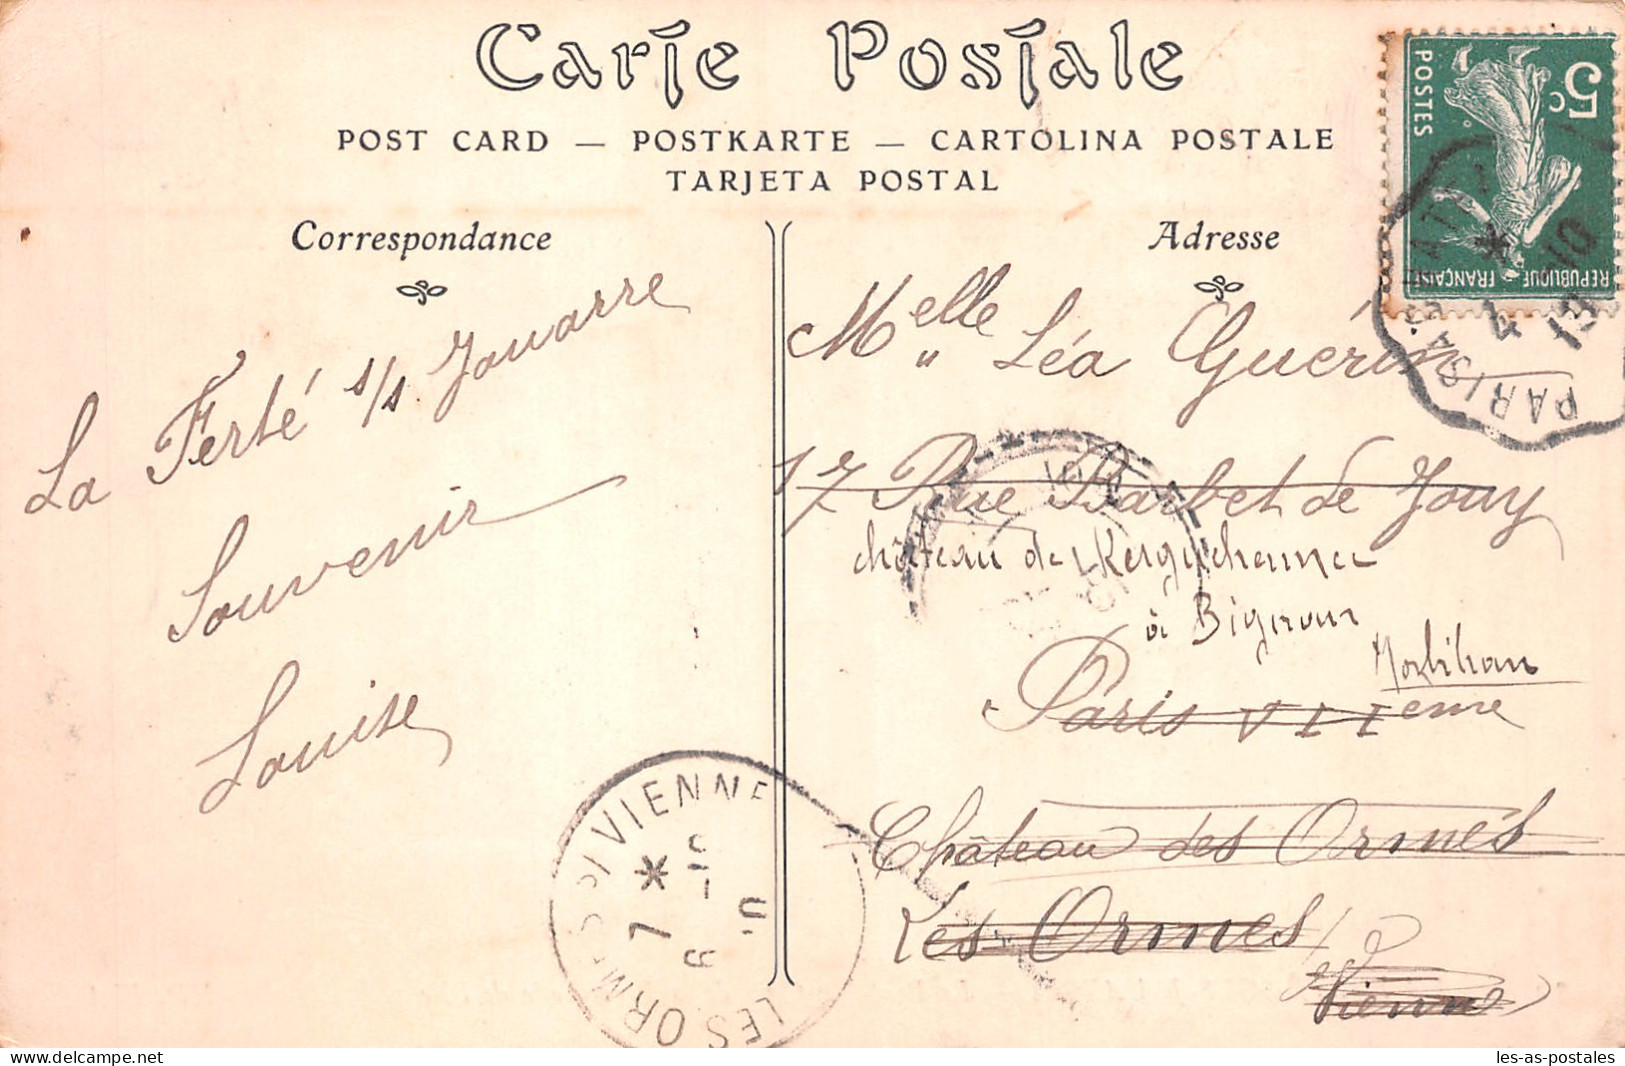 Carte Postale
POST CARD — POSTKARTE — CARTOLINA POSTALE
TARJETA POSTAL
Correspondance
La Ferté s/s Jouarre
Souvenir
Louise
Adresse
Melle Léa Guérin
17 Rue Barbet de Jouy
château de
à Bignan
Morbihan
Paris VIIeme
Château des Ormes
Les Ormes
Vienne
5c
POSTES
REPUBLIQUE FRANÇAISE
PARIS
4
10
VIENNE
7
LES ORMES
https://www.delcampe.net
les-as-postales